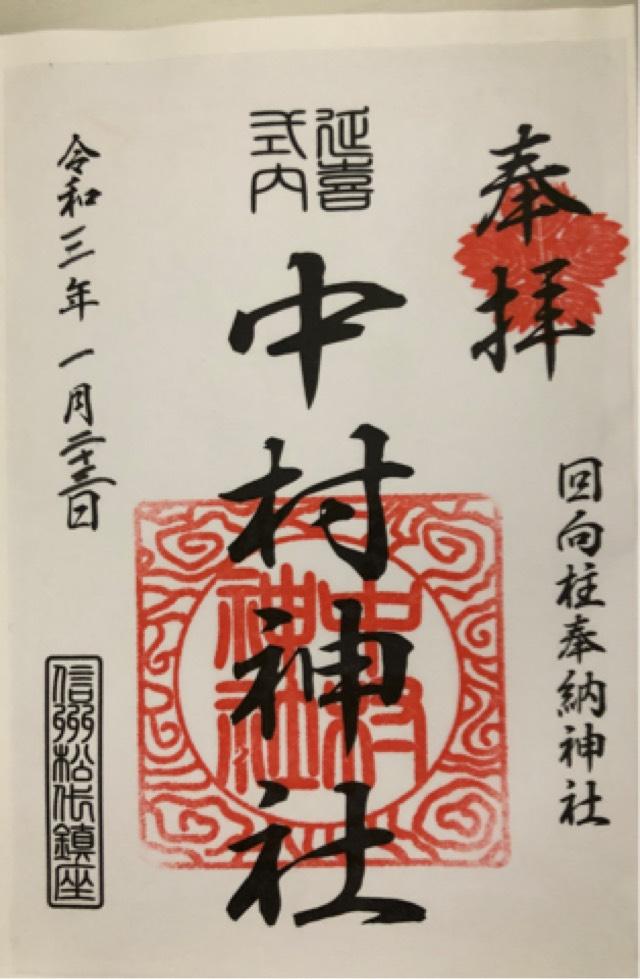 奉拝
回向柱奉納神社
延喜
式内
中村神社
中村
神社
令和三年一月二十三日
信州松代鎮座